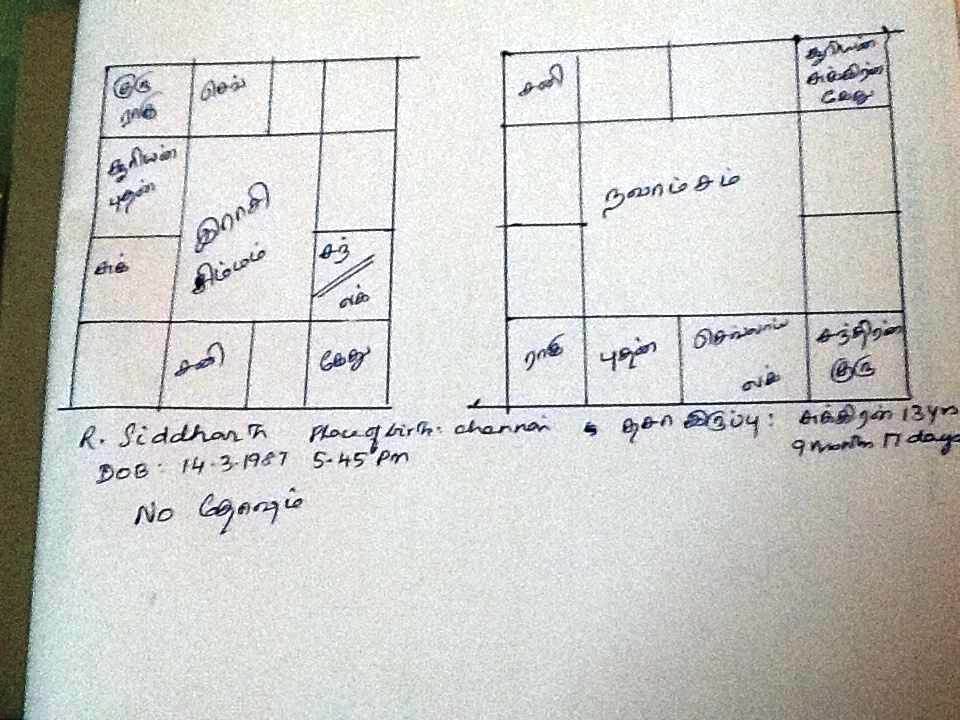 குரு
ராகு
செவ்
சூரியன்
புதன்
இராசி
சிம்மம்
சுக்
சந்
லக்
சனி
கேது
சனி
சூரியன்
சுக்கிரன்
கேது
நவாம்சம்
ராகு
புதன்
செவ்வாய்
லக்
சந்திரன்
குரு
R. Siddharth Place of birth: chennai தசா இருப்பு: சுக்கிரன் 13 yrs
9 month 17 days
DOB: 14-3-1987 5-45 Pm
No தோஷம்